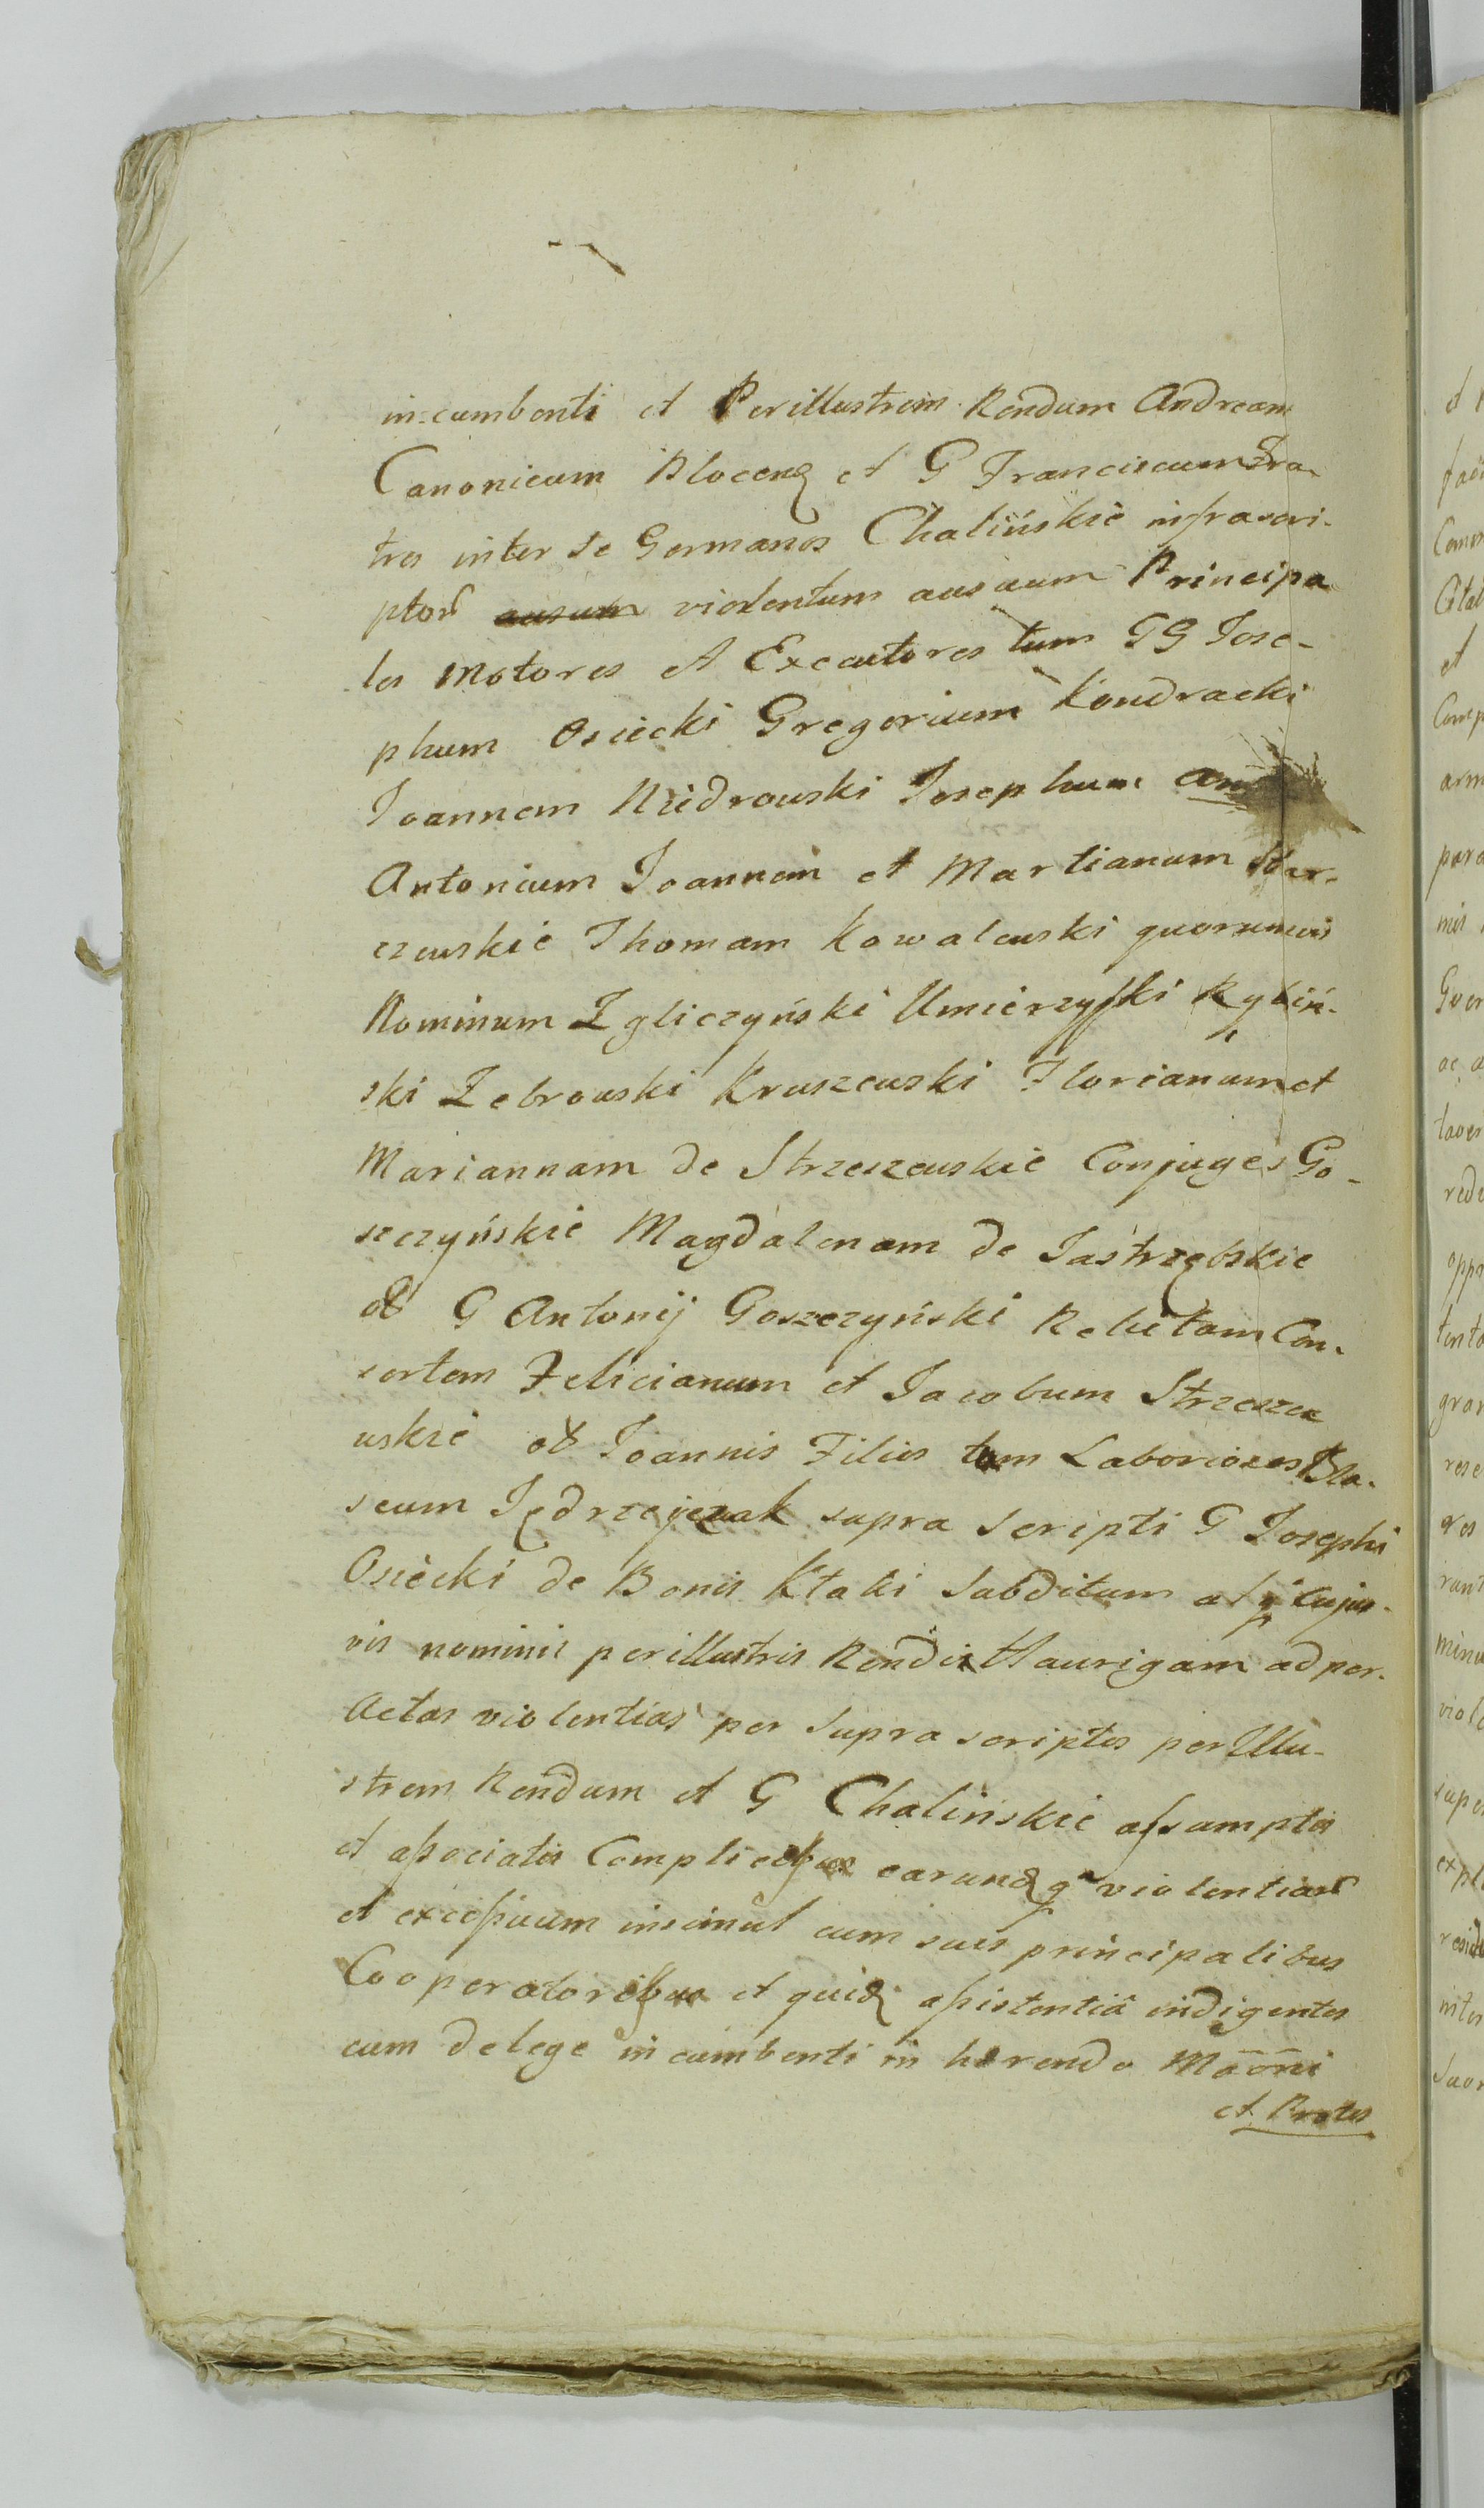 incumbenti et Perillustrem Rendum Andream
Canonicum Plocens et G Franciscum Fra-
tres inter se Germanos Chalińskie infrascri-
ptor violentum ausuum Principa
les Motores et Executores tum GG Jose-
phum Osiecki Gregorium Kondracki
Joannem Niedrowski Josephum
Antonium Joannem et Martianum
czewskie Thomam Kowalewski quorumvis
Nominum Zgliczyński Umierzyski Rybiń-
ski Zebrowski Kruszewski Florianum et
Mariannam de Strzeszewskie Conjuges Go-
szczyńskie Magdalenam de Jastrzębskie
G Antonij Goszczyński Relictam Con-
sortem Felicianum et Jacobum Strzesze
wskie Joannis Filios tum Laboriosos Bla-
seum Jędrzejczak supra scripti G Josephi
Osiecki de Bonis Ktaki Subditum atq cujus-
vis nominis perillustris Rendi Aurigam ad per-
actas violentias per supra scriptos per Illu-
strem Rendum et G Chalińskie assumptos
et associatos Complices earund q violentiar
et excessuum insimul cum suis principalibus
Cooperatoribus et quid assistentiâ indigentes
cum de lege incumbenti in herendo Maoni
et Protes